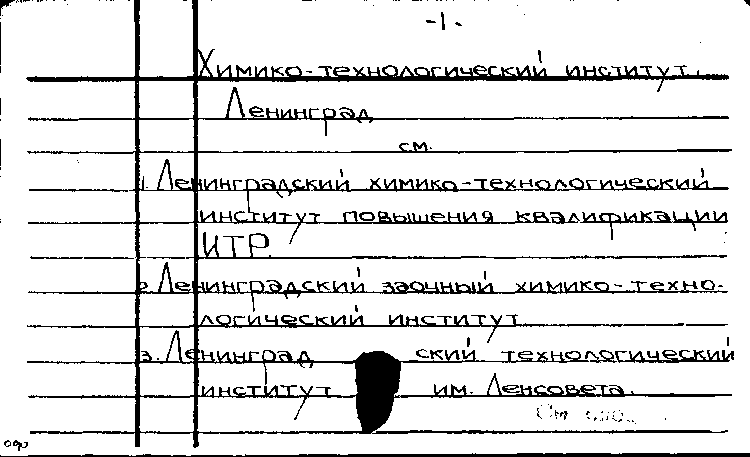 -1-
Химико-технологический институт.
Ленинград
см.
1. Ленинградский химико-технологический
институт повышения квалификации
ИТР.
2. Ленинградский заочный химико-техно-
логический институт
3. Ленинград ский технологический
институт им. Ленсовета.
См.